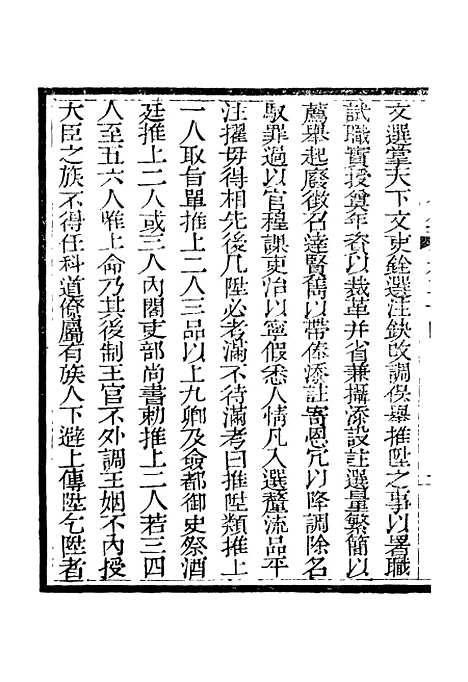 文選掌天下文吏銓選注缺改調保舉推陞之事以署職
試職實授奠年資以裁革并省兼攝添設註選量繁簡以
薦舉起廢徵召達賢舊以帶俸添註寄恩冗以降調除名
馭罪過以官程課吏治以寧假悉人情凡入選釐流品平
注擢毋得相先後凡陞必考滿不待滿考曰推陞類推上
一人取旨單推上二人三品以上九卿及僉都御史祭酒
廷推上二人或三人內閣吏部尚書勅推上二人若三四
人至五六人唯上命乃其後制王官不外調王姻不內授
大臣之族不得任科道僚屬有族人下避上傳陞乞陞者